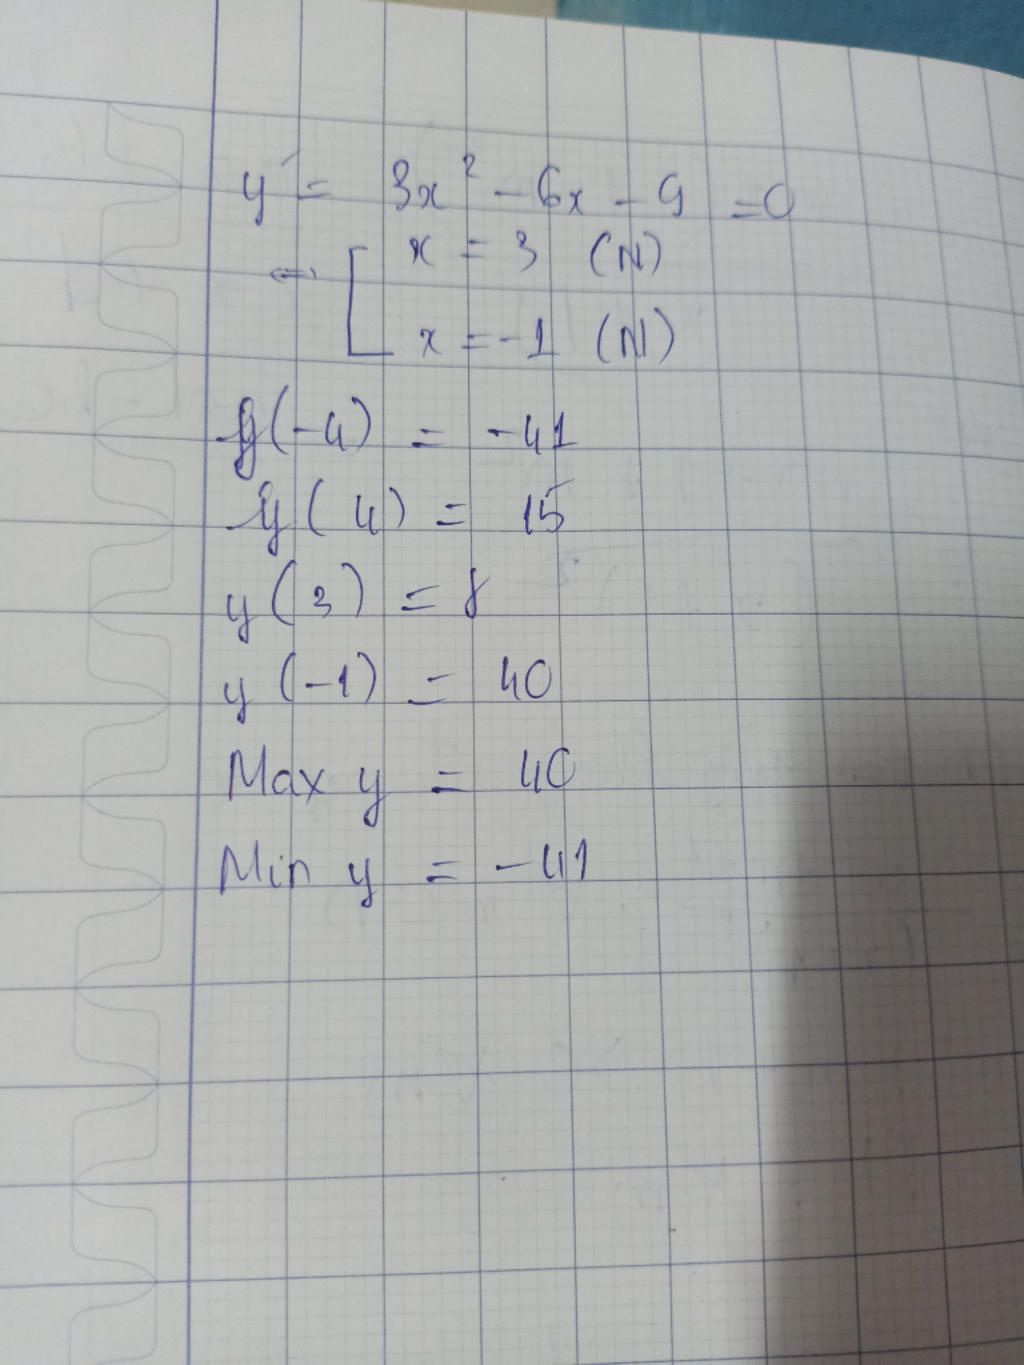 y' = 3x² - 6x - 9 = 0
⇔ [ x = 3 (N)
x = -1 (N)
y(-4) = -41
y(4) = 15
y(3) = 8
y(-1) = 40
Max y = 40
Min y = -41